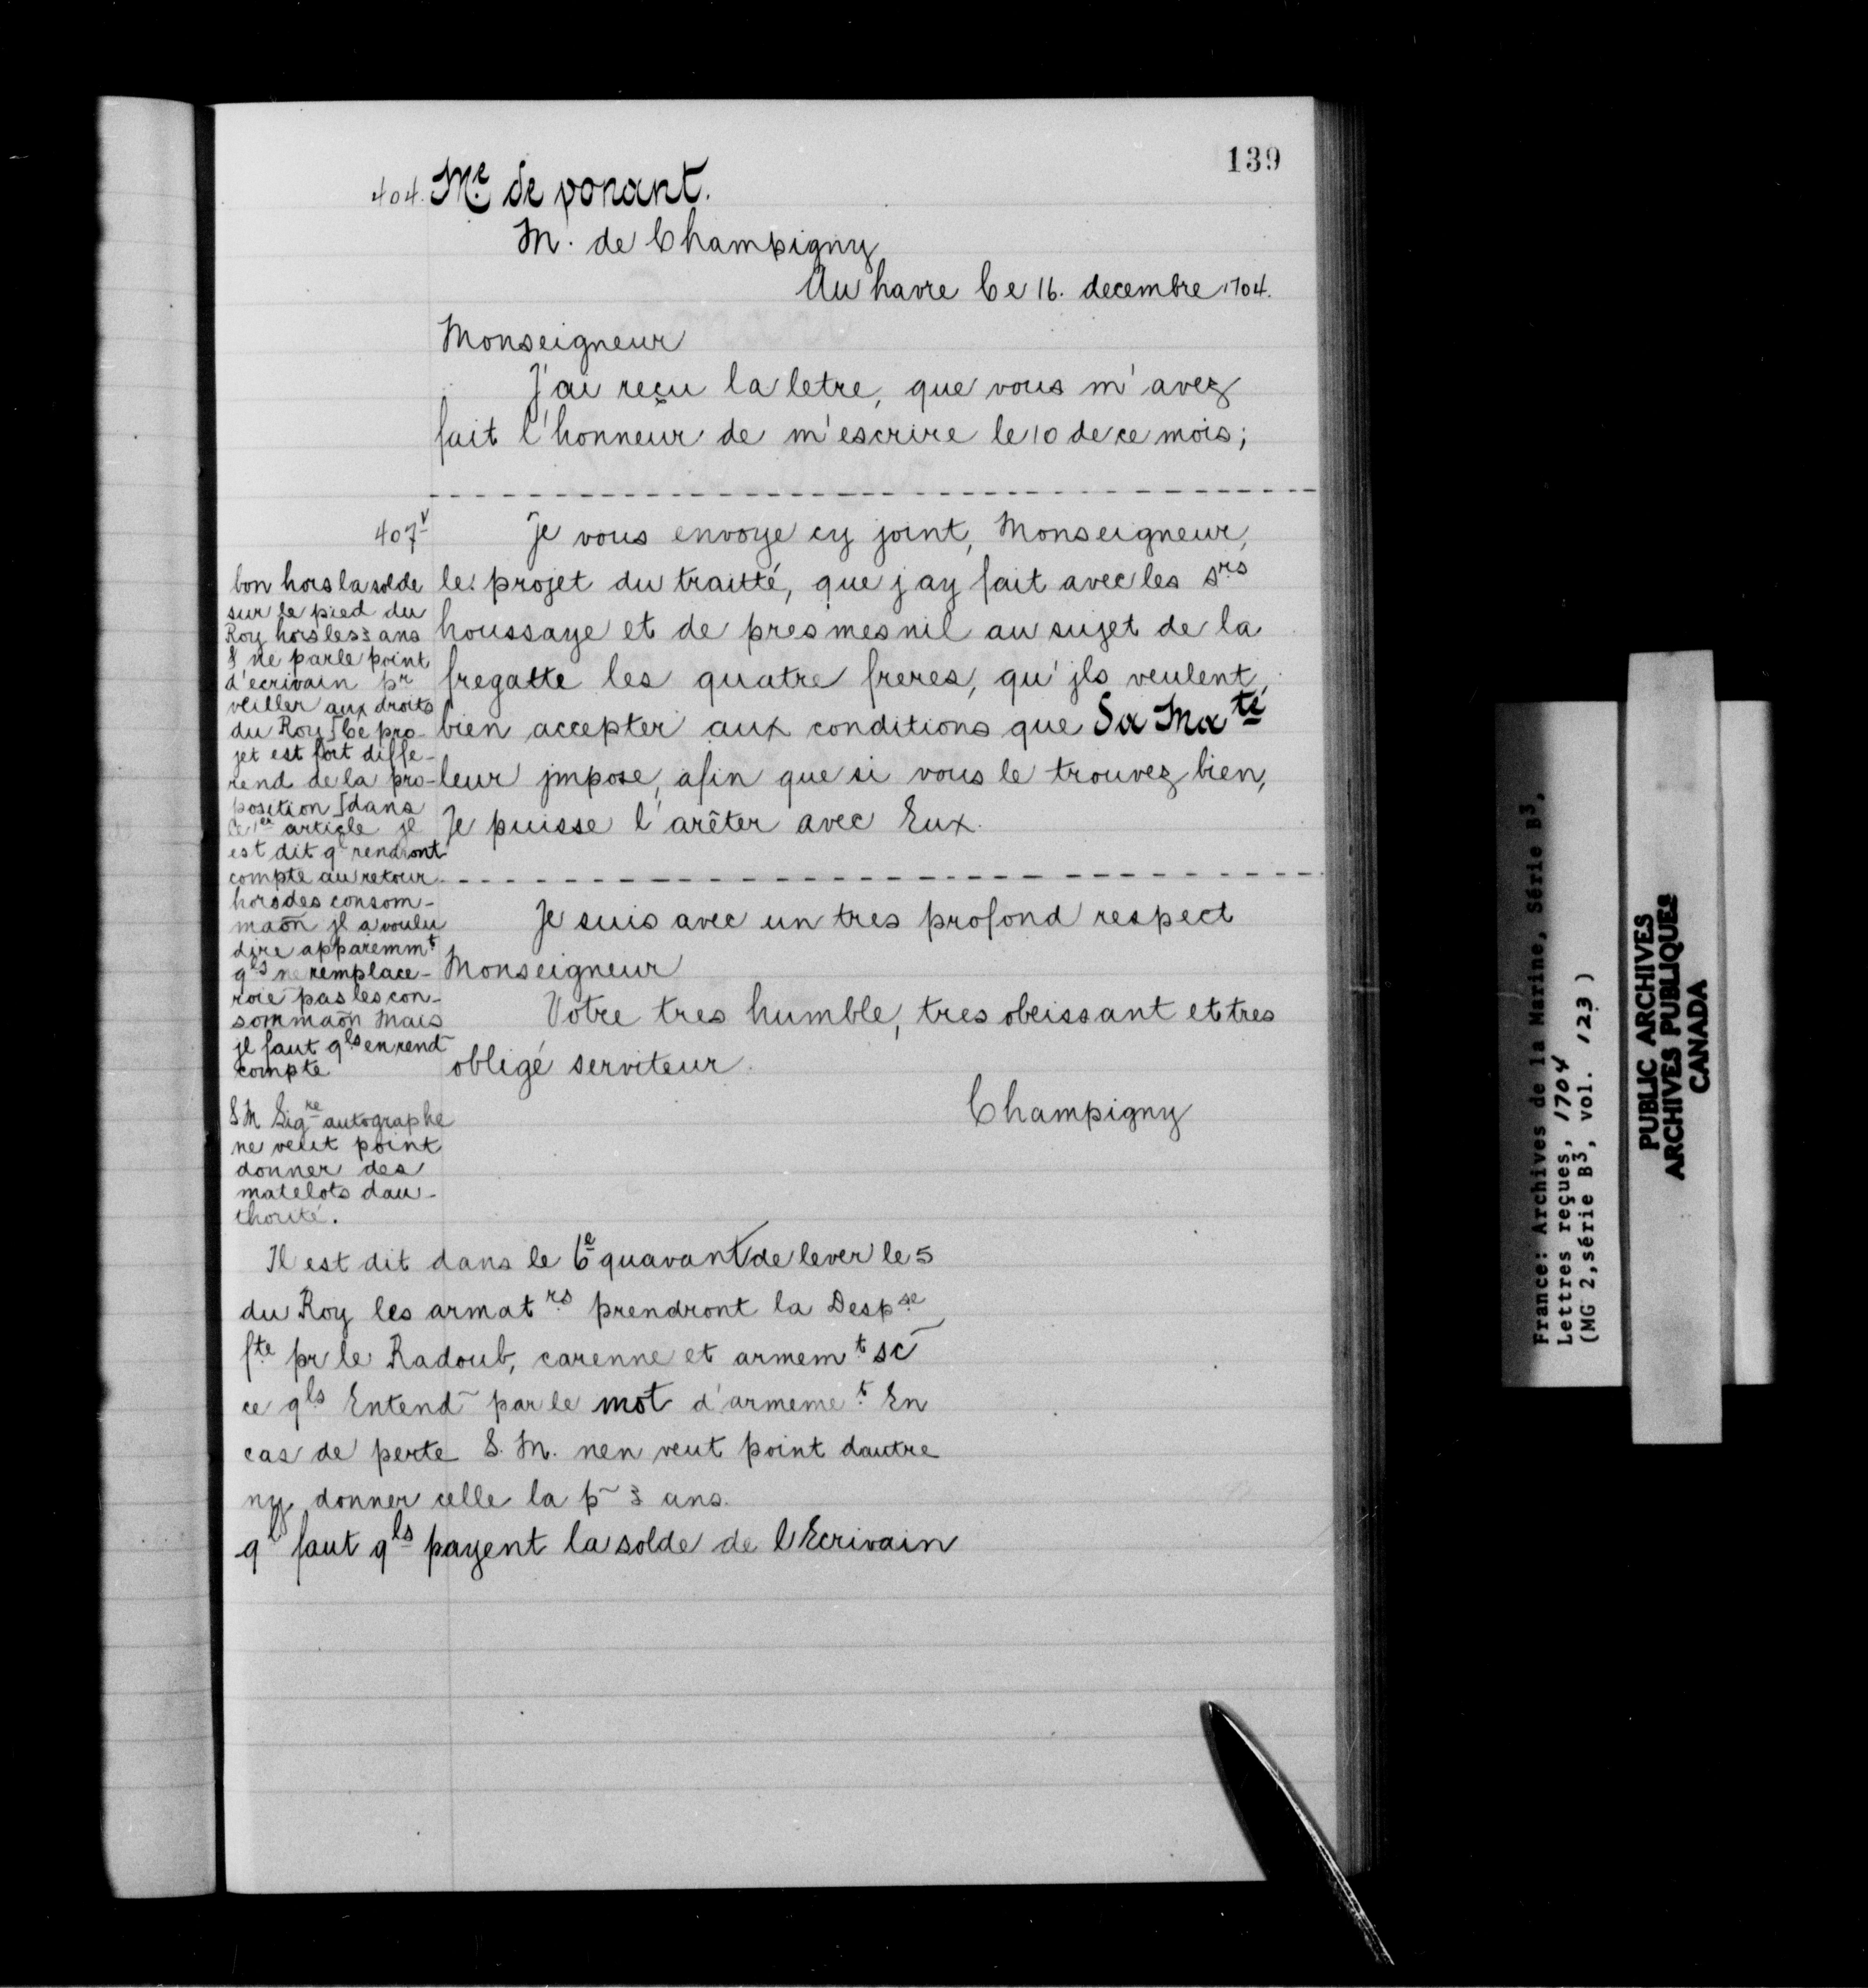 139
404. Me de ponant.
M. de Champigny
Au havre Ce 16. decembre 1704.
Monseigneur
J'ai reçu la letre, que vous m'avez
fait l'honneur de m'escrire le 10 de ce mois;
407v
Je vous envoye cy joint, Monseigneur,
le projet du traitté, que jay fait avec les Srs
houssaye et de presmesnil au sujet de la
fregatte les quatre freres, qu'jls veulent
bien accepter aux conditions que Sa Maté
leur jmpose, afin que si vous le trouvez bien,
Je puisse l'arêter avec Eux.
Je suis avec un tres profond respect
Monseigneur
Votre tres humble, tres obeissant et tres
obligé serviteur.
Champigny
bon hors la solde
sur le pied du
Roy hors les 3 ans
& ne parle point
d'ecrivain pr
veiller aux droits
du Roy [Ce pro-
jet est fort diffe-
rend de la pro-
position [dans
le 1er article jl
est dit ql rendront
compte au retour
hors des consom-
maõn jl a voulu
dire apparemmt
qls ne remplace-
roie pas les con-
sommaõn Mais
jl faut qls en rend
compte
S M Sigre autographe
ne veut point
donner des
matelots dau-
thorité.
Il est dit dans le 6e quavant de lever le 5
du Roy les armatrs prendront la Despse
fte pr le Radoub, carenne et armemt sc̃
ce qls Entend̃ par le mot d'armemet En
cas de perte S. M. nen veut point dautre
ny donner celle la p̃ 3 ans.
ql faut qls payent la solde de lEcrivain
France: Archives de la Marine, Série B3,
Lettres reçues, 1704
(MG 2, série B3, vol. 123)
PUBLIC ARCHIVES
ARCHIVES PUBLIQUES
CANADA